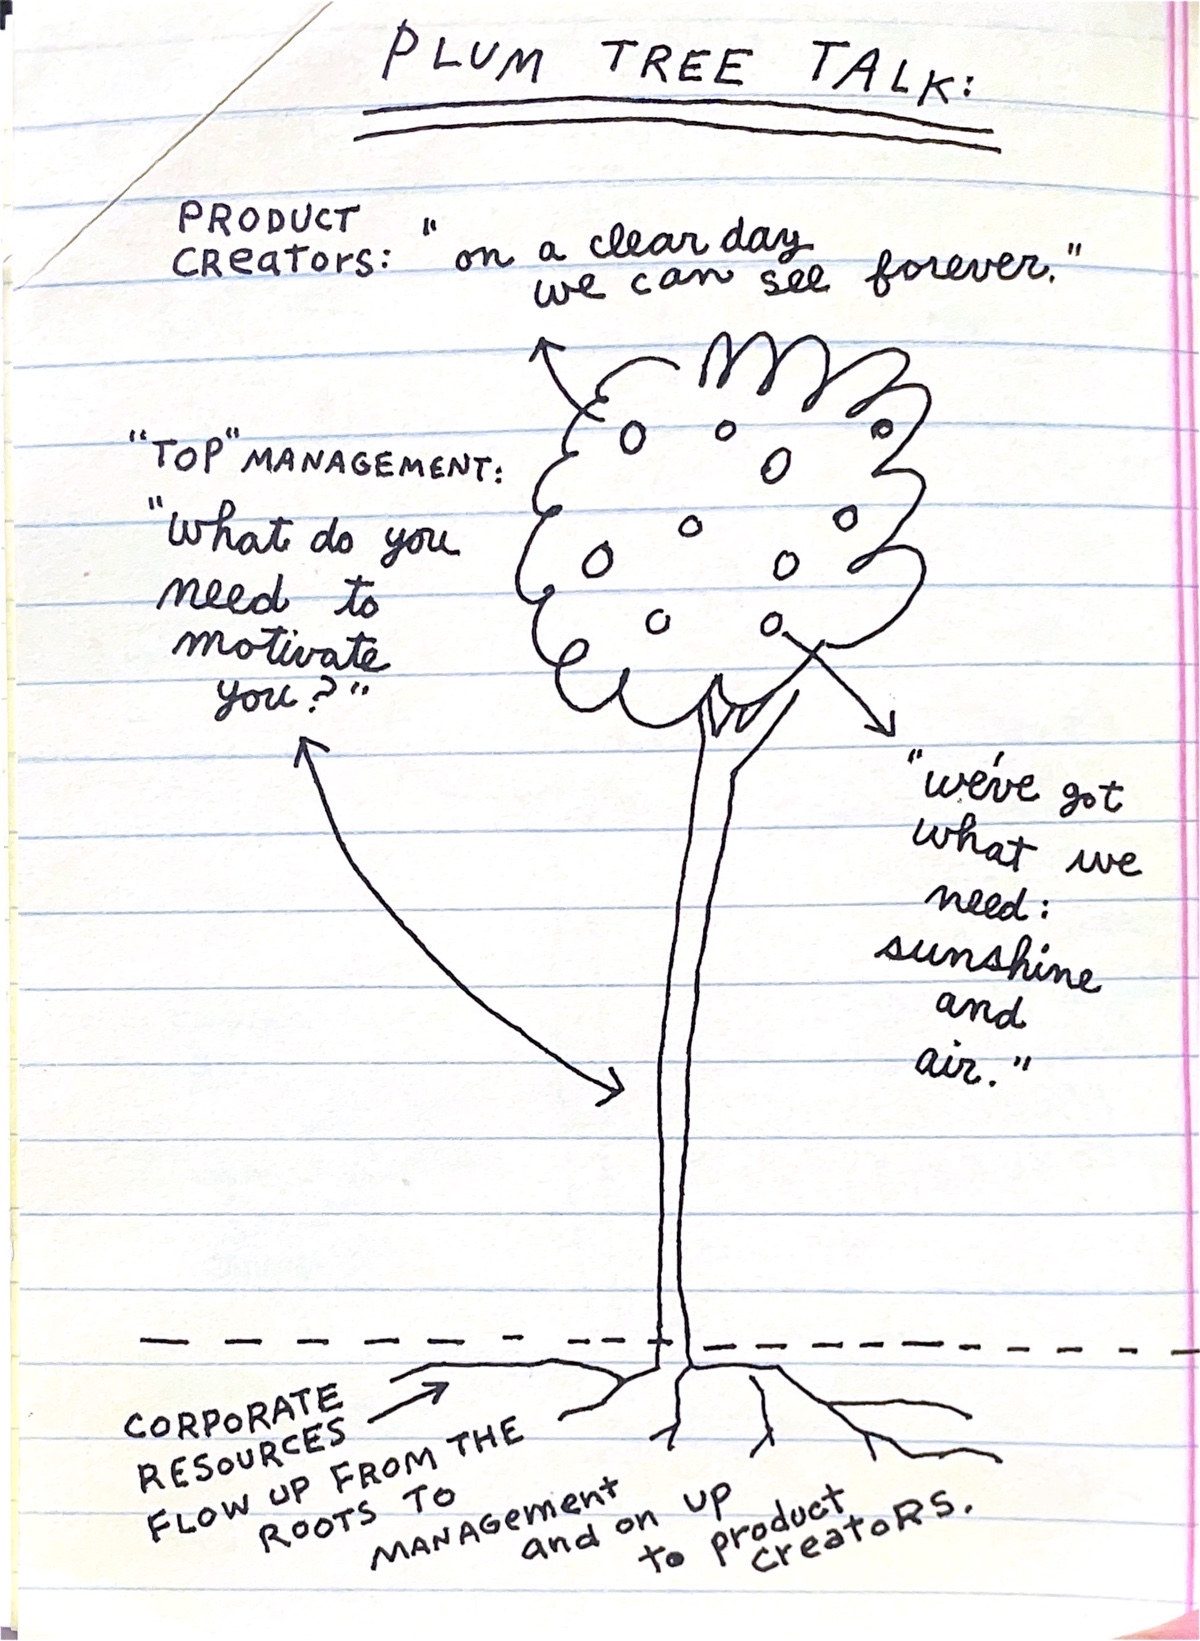 PLUM TREE TALK:
PRODUCT
CREATORS: "on a clear day
we can see forever."
"TOP" MANAGEMENT:
"what do you
need to
motivate
you?"
"we've got
what we
need:
sunshine
and
air."
CORPORATE
RESOURCES
FLOW UP FROM THE
ROOTS TO
MANAGEMENT
and on up
to product
CREATORS.